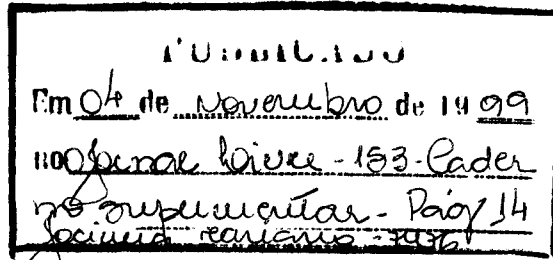 PUBLICADO
Em 04 de Novembro de 1999
no Jornal Livre - 153 - Cader
no suplementar - Pág 14